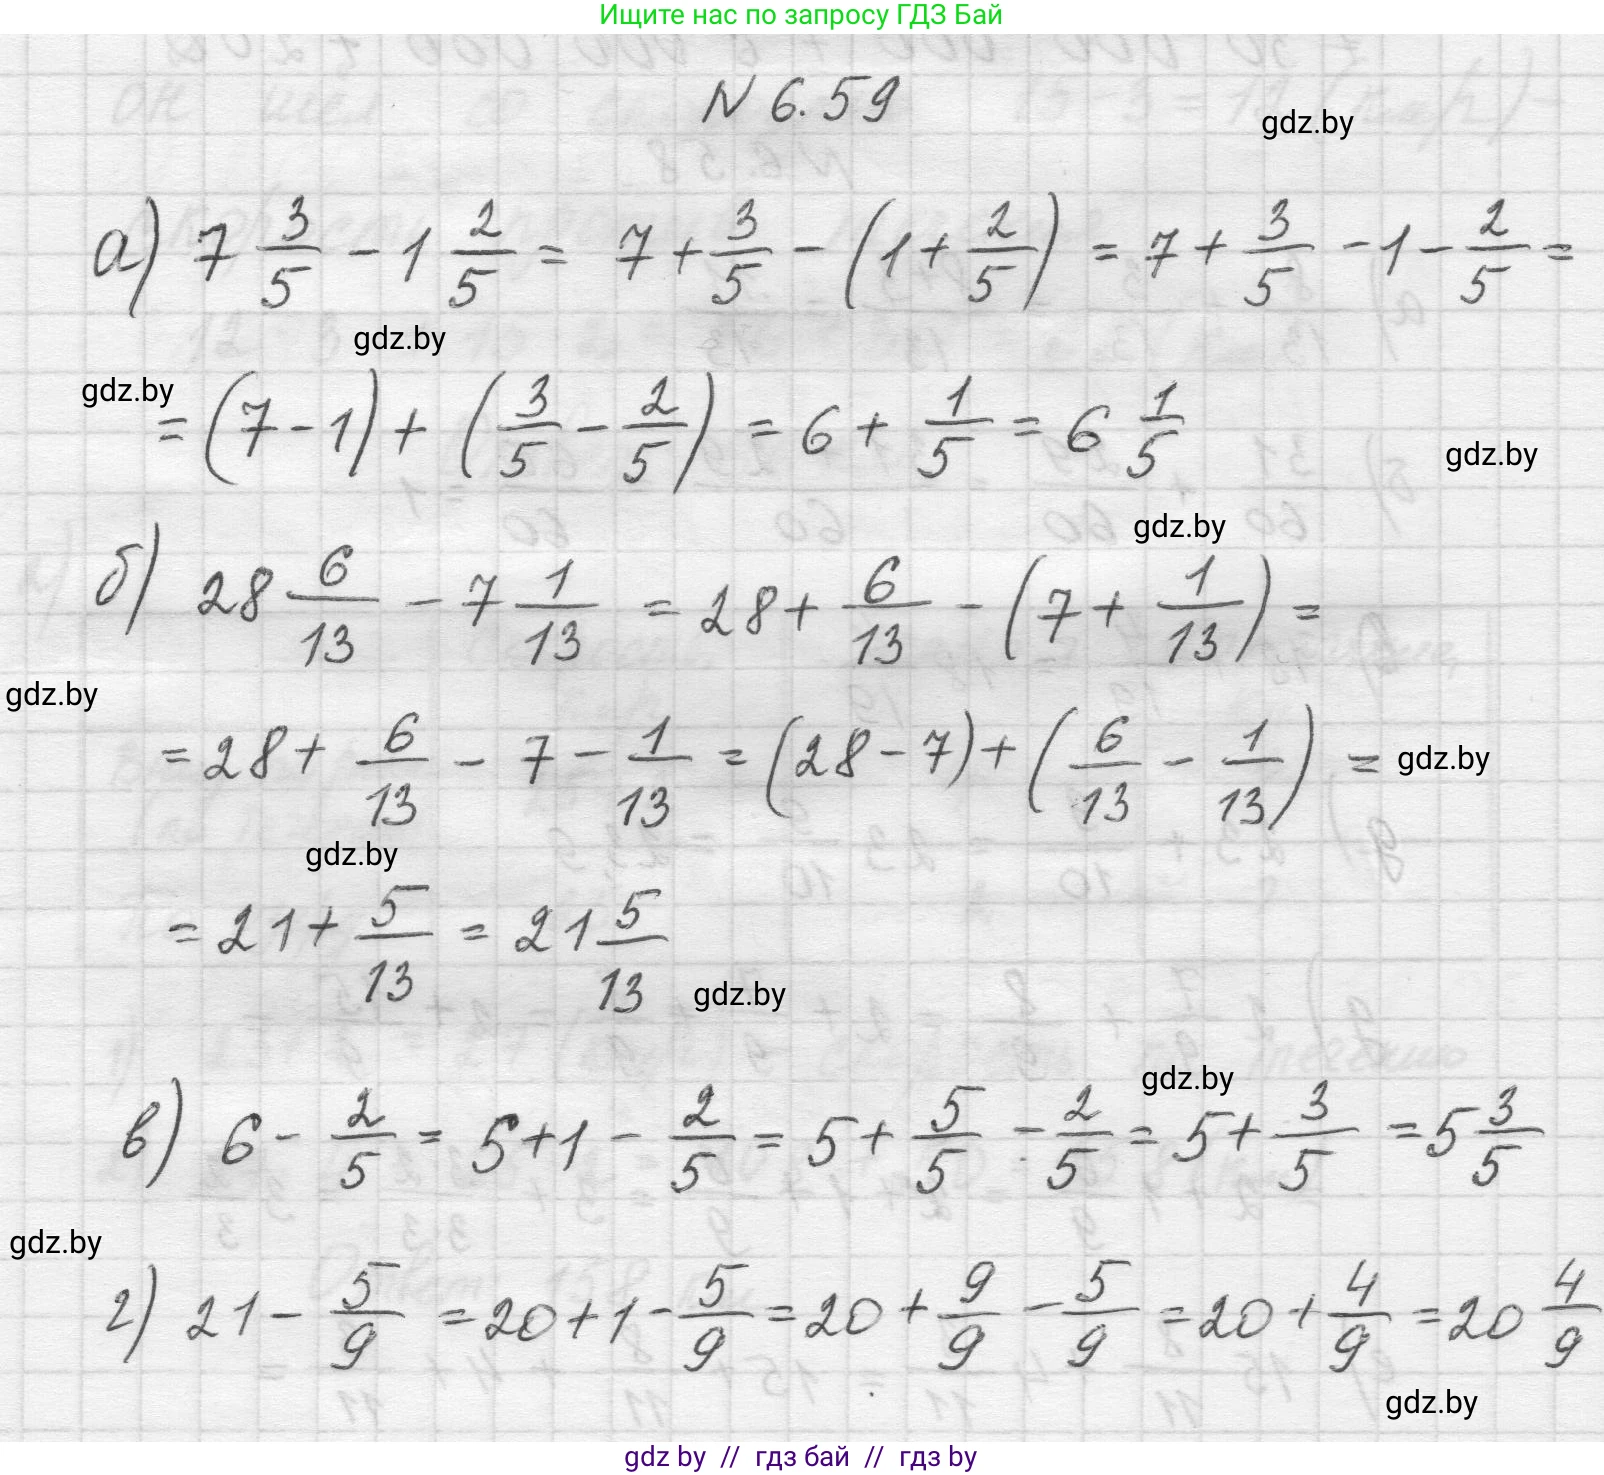 Ищите нас по запросу ГДЗ Бай
N 6.59
gdz.by
а) 7 3/5 - 1 2/5 = 7 + 3/5 - (1 + 2/5) = 7 + 3/5 - 1 - 2/5 =
gdz.by
gdz.by
= (7 - 1) + (3/5 - 2/5) = 6 + 1/5 = 6 1/5
gdz.by
gdz.by
б) 28 6/13 - 7 1/13 = 28 + 6/13 - (7 + 1/13) =
gdz.by
= 28 + 6/13 - 7 - 1/13 = (28 - 7) + (6/13 - 1/13) =
gdz.by
gdz.by
= 21 + 5/13 = 21 5/13
gdz.by
gdz.by
в) 6 - 2/5 = 5 + 1 - 2/5 = 5 + 5/5 - 2/5 = 5 + 3/5 = 5 3/5
gdz.by
г) 21 - 5/9 = 20 + 1 - 5/9 = 20 + 9/9 - 5/9 = 20 + 4/9 = 20 4/9
gdz.by
gdz by // гдз бай // гдз by